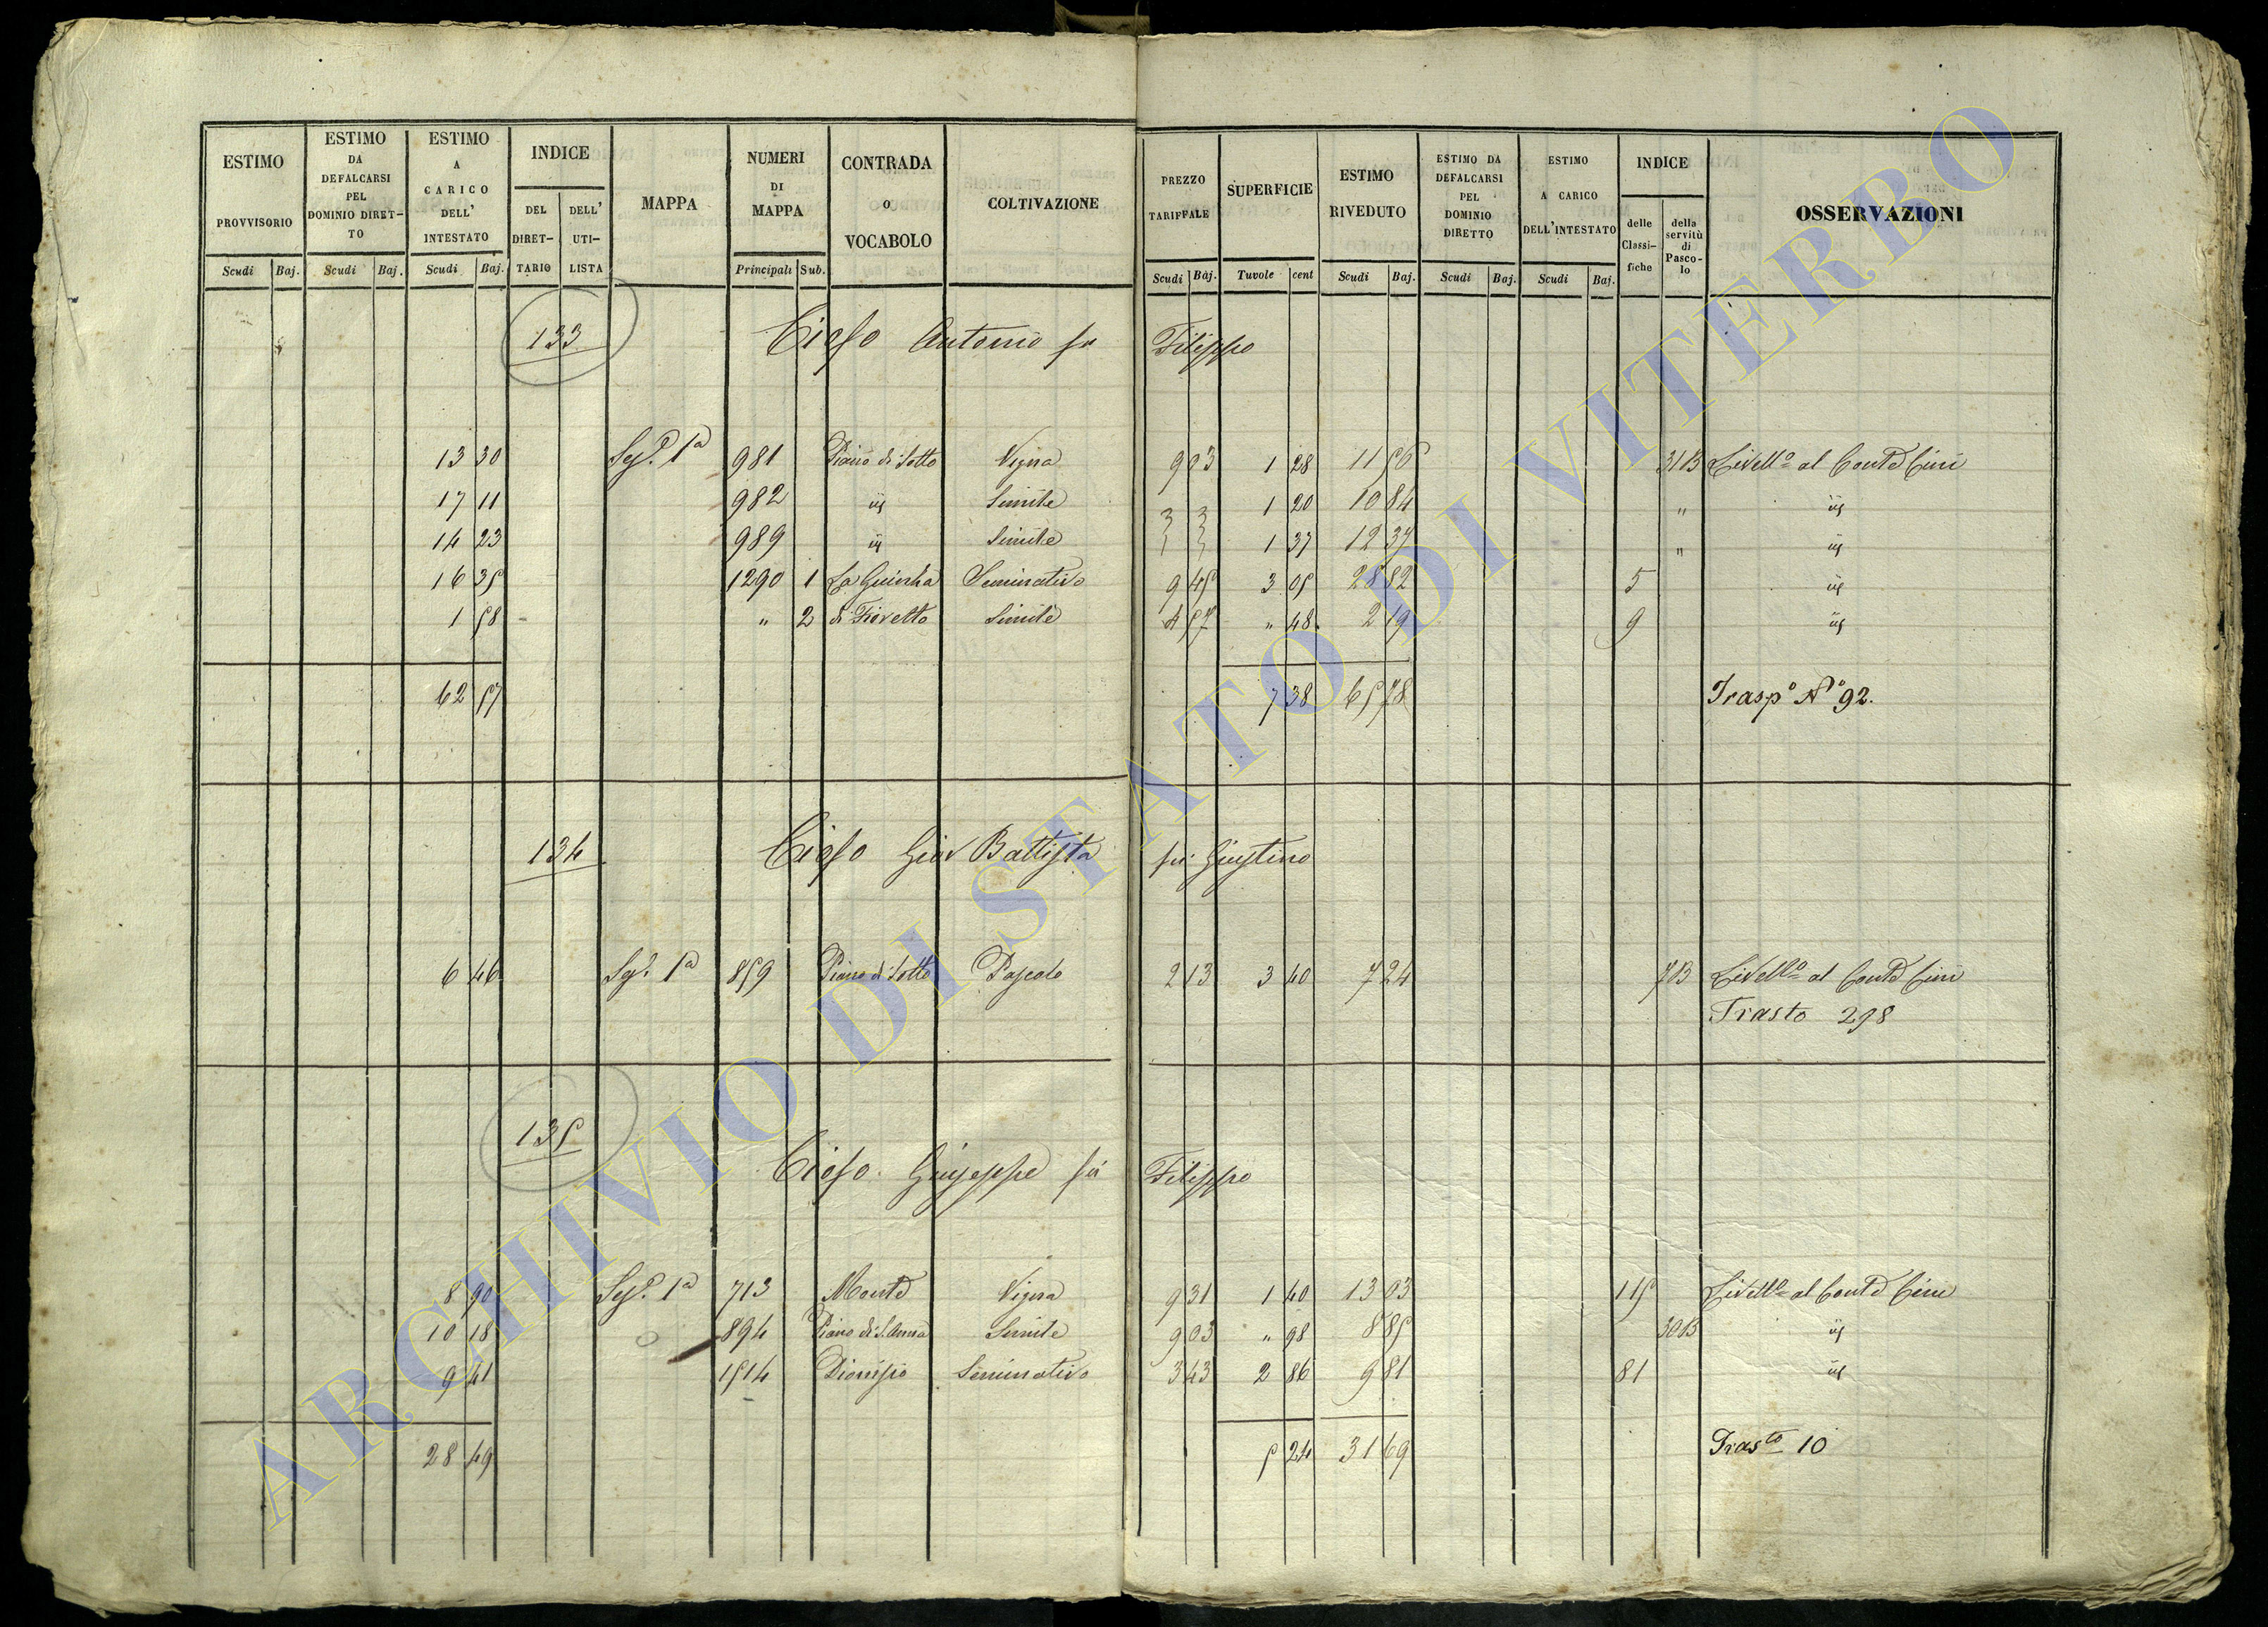 ESTIMO PROVVISORIO ESTIMO DA DEFALCARSI PEL DOMINIO DIRET-TO ESTIMO A CARICO DELL' INTESTATO INDICE DEL DIRET-TARIO DELL' UTI-LISTA MAPPA NUMERI DI MAPPA CONTRADA O VOCABOLO COLTIVAZIONE PREZZO TARIFFALE SUPERFICIE ESTIMO RIVEDUTO ESTIMO DA DEFALCARSI PEL DOMINIO DIRETTO ESTIMO A CARICO DELL'INTESTATO INDICE delle Classi-fiche della servitù di Pasco-lo OSSERVAZIONI
Scudi Baj. Scudi Baj. Scudi Baj. Principali Sub. Scudi Baj. Tavole cent Scudi Baj. Scudi Baj. Scudi Baj.
133 Antonio fu Filippo
13 30 1a 981 Piano di Sotto Vigna 9 03 1 28 11 56 31B Livello al Conte Cini
17 11 982 Simile 1 20 10 84 "
14 23 989 Simile 1 37 12 37 "
16 35 1290 1 Seminativo 9 45 3 05 28 82 5
1 58 " 2 di Fioretto Simile 4 57 " 48 2 19 9
62 57 7 38 65 78 Traspo No 92.
134 Giov Battista fu Giustino
6 46 1a 859 Piano di Sotto Pascolo 2 13 3 40 7 24 7B Livello al Conte Cini
Trasto 298
135 Giuseppe fu Filippo
8 90 1a 713 Monte Vigna 9 31 1 40 13 03 115 Livello al Conte Cini
10 18 894 Piano di S. Anna Simile 9 03 " 98 8 85 30B
9 41 1514 Dionisio Seminativo 3 43 2 86 9 81 81
28 49 5 24 31 69 Trasto 10
ARCHIVIO DI STATO DI VITERBO